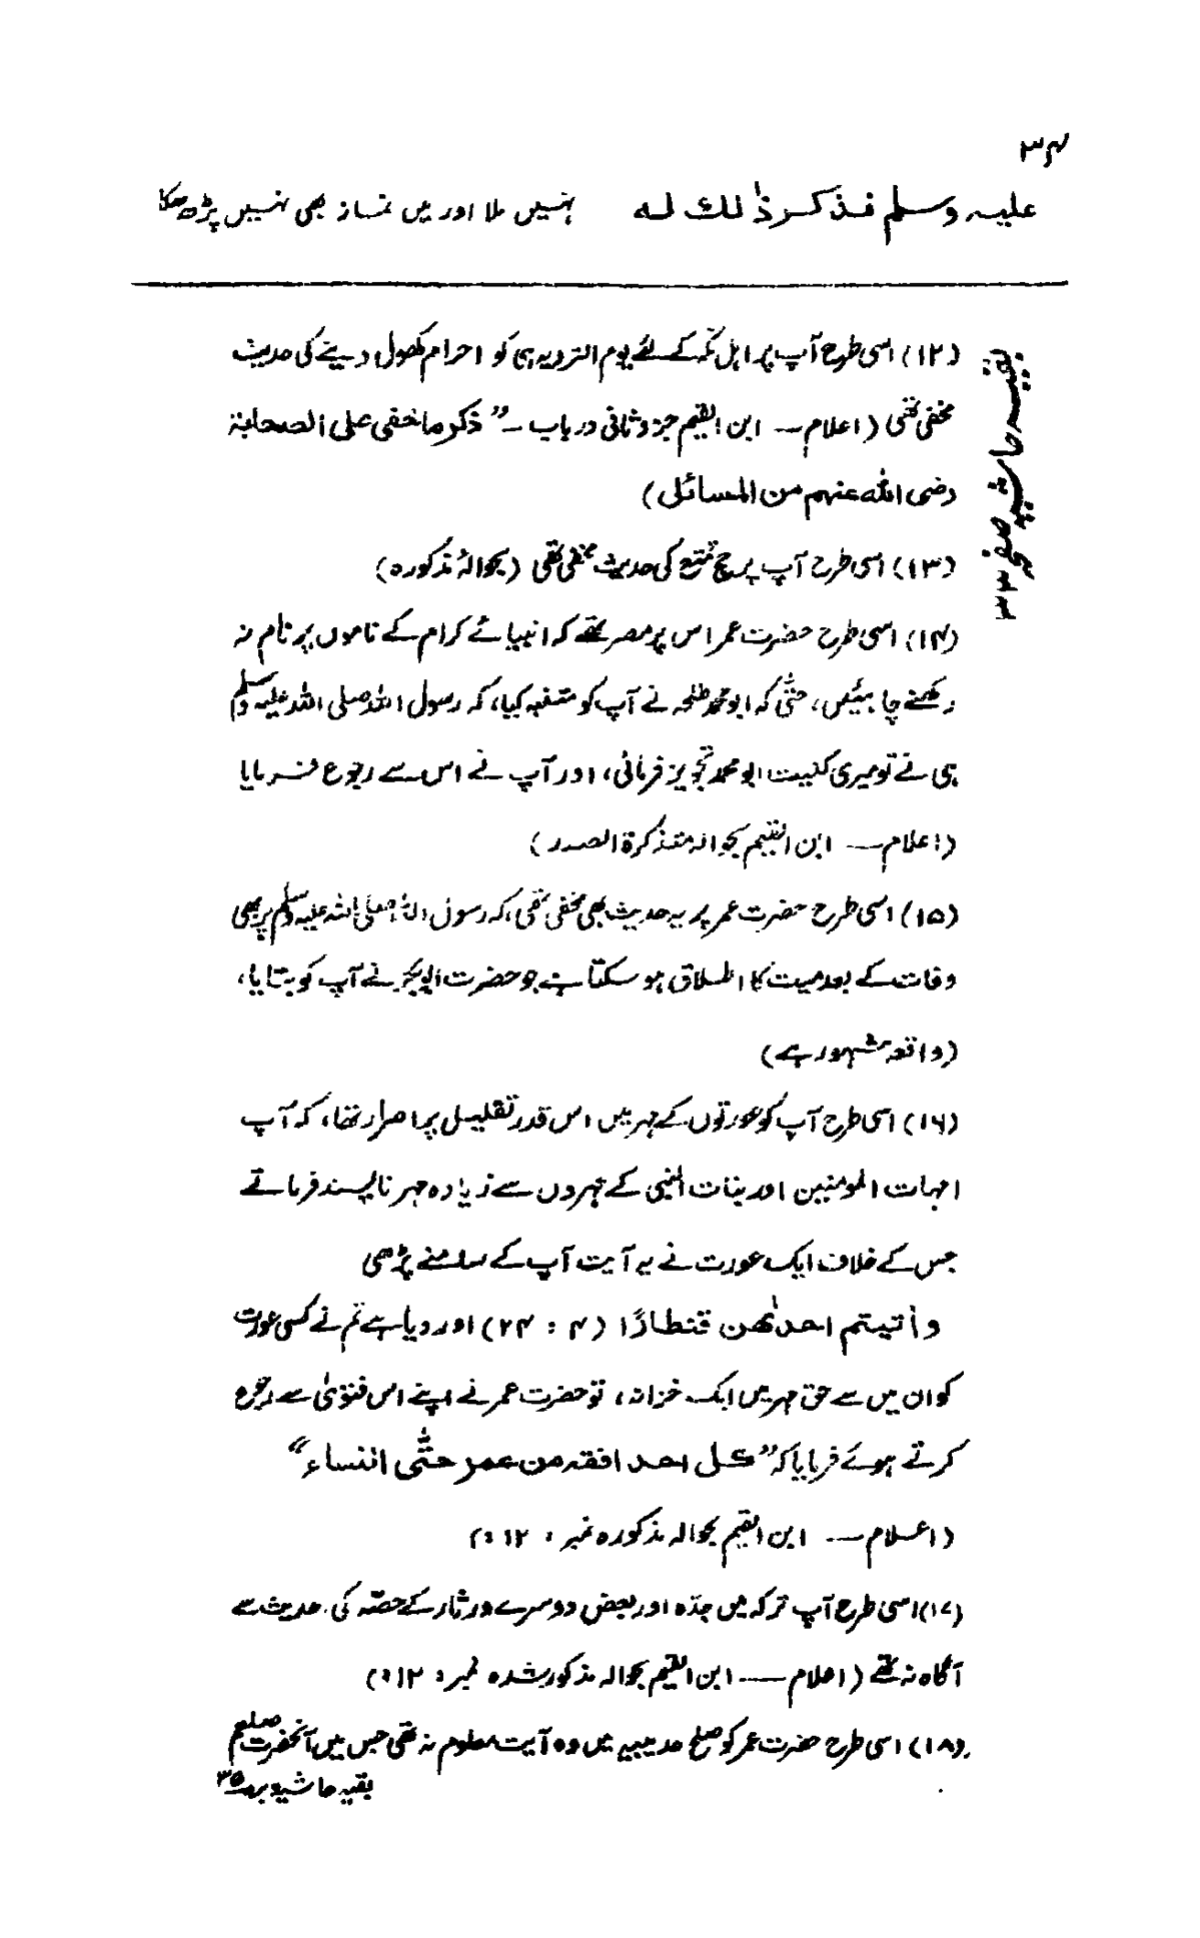 ۳۴
علیہ وسلم فذکر ذٰلک لہ نہیں ملا اور میں نماز بھی نہیں پڑھ سکا
بقیہ حاشیہ صفحہ ۳۳
(۱۲) اسی طرح آپ پر اہل مکہ کے لئے یوم الترویہ ہی کو احرام کھول دینے کی حدیث
مخفی تھی (اعلام — ابن القیم جزو ثانی در باب — ”ذکر ما خفی علی الصحابۃ
رضی اللہ عنہم من المسائل)
(۱۳) اسی طرح آپ پر حج تمتع کی حدیث مخفی تھی (بحوالۂ مذکورہ)
(۱۴) اسی طرح حضرت عمر اس پر مصر تھے کہ انبیائے کرام کے ناموں پر نام نہ
رکھنے چاہئیں، حتیٰ کہ ابو محمد طلحہ نے آپ کو متنبہ کیا، کہ رسول اللہ صلی اللہ علیہ وسلم
ہی نے تو میری کنیت ابو محمد تجویز فرمائی، اور آپ نے اس سے رجوع فرمایا
(اعلام — ابن القیم بحوالہ متذکرۃ الصدر)
(۱۵) اسی طرح حضرت عمر پر یہ حدیث بھی مخفی تھی، کہ رسول اللہ صلی اللہ علیہ وسلم پر بھی
وفات کے بعد میت کا اطلاق ہو سکتا ہے جو حضرت ابوبکر نے آپ کو بتایا،
(واقعہ مشہور ہے)
(۱۶) اسی طرح آپ کو عورتوں کے مہر میں اس قدر تقلیل پر اصرار تھا، کہ آپ
امہات المومنین اور بنات النبی کے مہروں سے زیادہ مہر ناپسند فرماتے
جس کے خلاف ایک عورت نے یہ آیت آپ کے سامنے پڑھی
واٰتیتم احدٰھن قنطارًا (۴ : ۲۴) اور دیا ہے تم نے کسی عورت
کو ان میں سے حق مہر میں ایک خزانہ، تو حضرت عمر نے اپنے اس فتویٰ سے رجوع
کرتے ہوئے فرمایا کہ ”کل احد افقہ من عمر حتّٰی النساء“
(اعلام — ابن القیم بحوالہ مذکورہ نمبر : ۱۲ :)
(۱۷) اسی طرح آپ ترکہ میں جدّہ اور بعض دوسرے ورثار کے حصّہ کی حدیث سے
آگاہ نہ تھے (اعلام — ابن القیم بحوالہ مذکور شدہ نمبر : ۱۲ :)
(۱۸) اسی طرح حضرت عمر کو صلح حدیبیہ میں وہ آیت معلوم نہ تھی جس میں آنحضرت صلعم
بقیہ حاشیہ بر ص۳۵